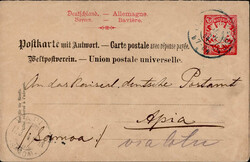 Deutschland. — Allemagne
Bayern. — Bavière.
Postkarte mit Antwort. — Carte postale avec réponse payée.
Weltpostverein. — Union postale universelle.
An das Kaiserl. deutsche Postamt
Apia
(Samoa)